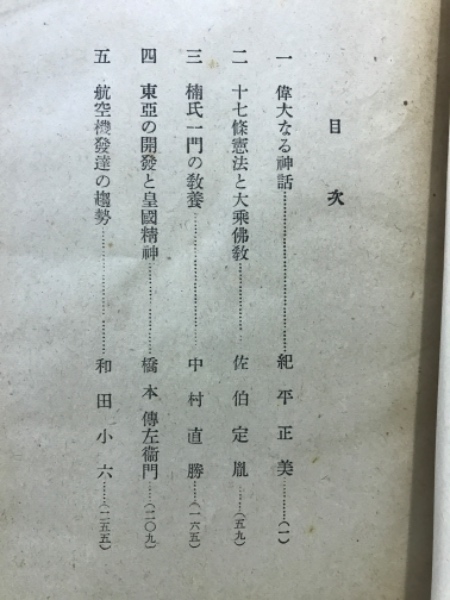 目次
一 偉大なる神話……………………紀平正美………(一)
二 十七條憲法と大乘佛教……………佐伯定胤……(五九)
三 楠氏一門の教養……………………中村直勝……(一六五)
四 東亞の開發と皇國精神……………橋本傳左衞門……(二〇九)
五 航空機發達の趨勢…………………和田小六……(二五五)